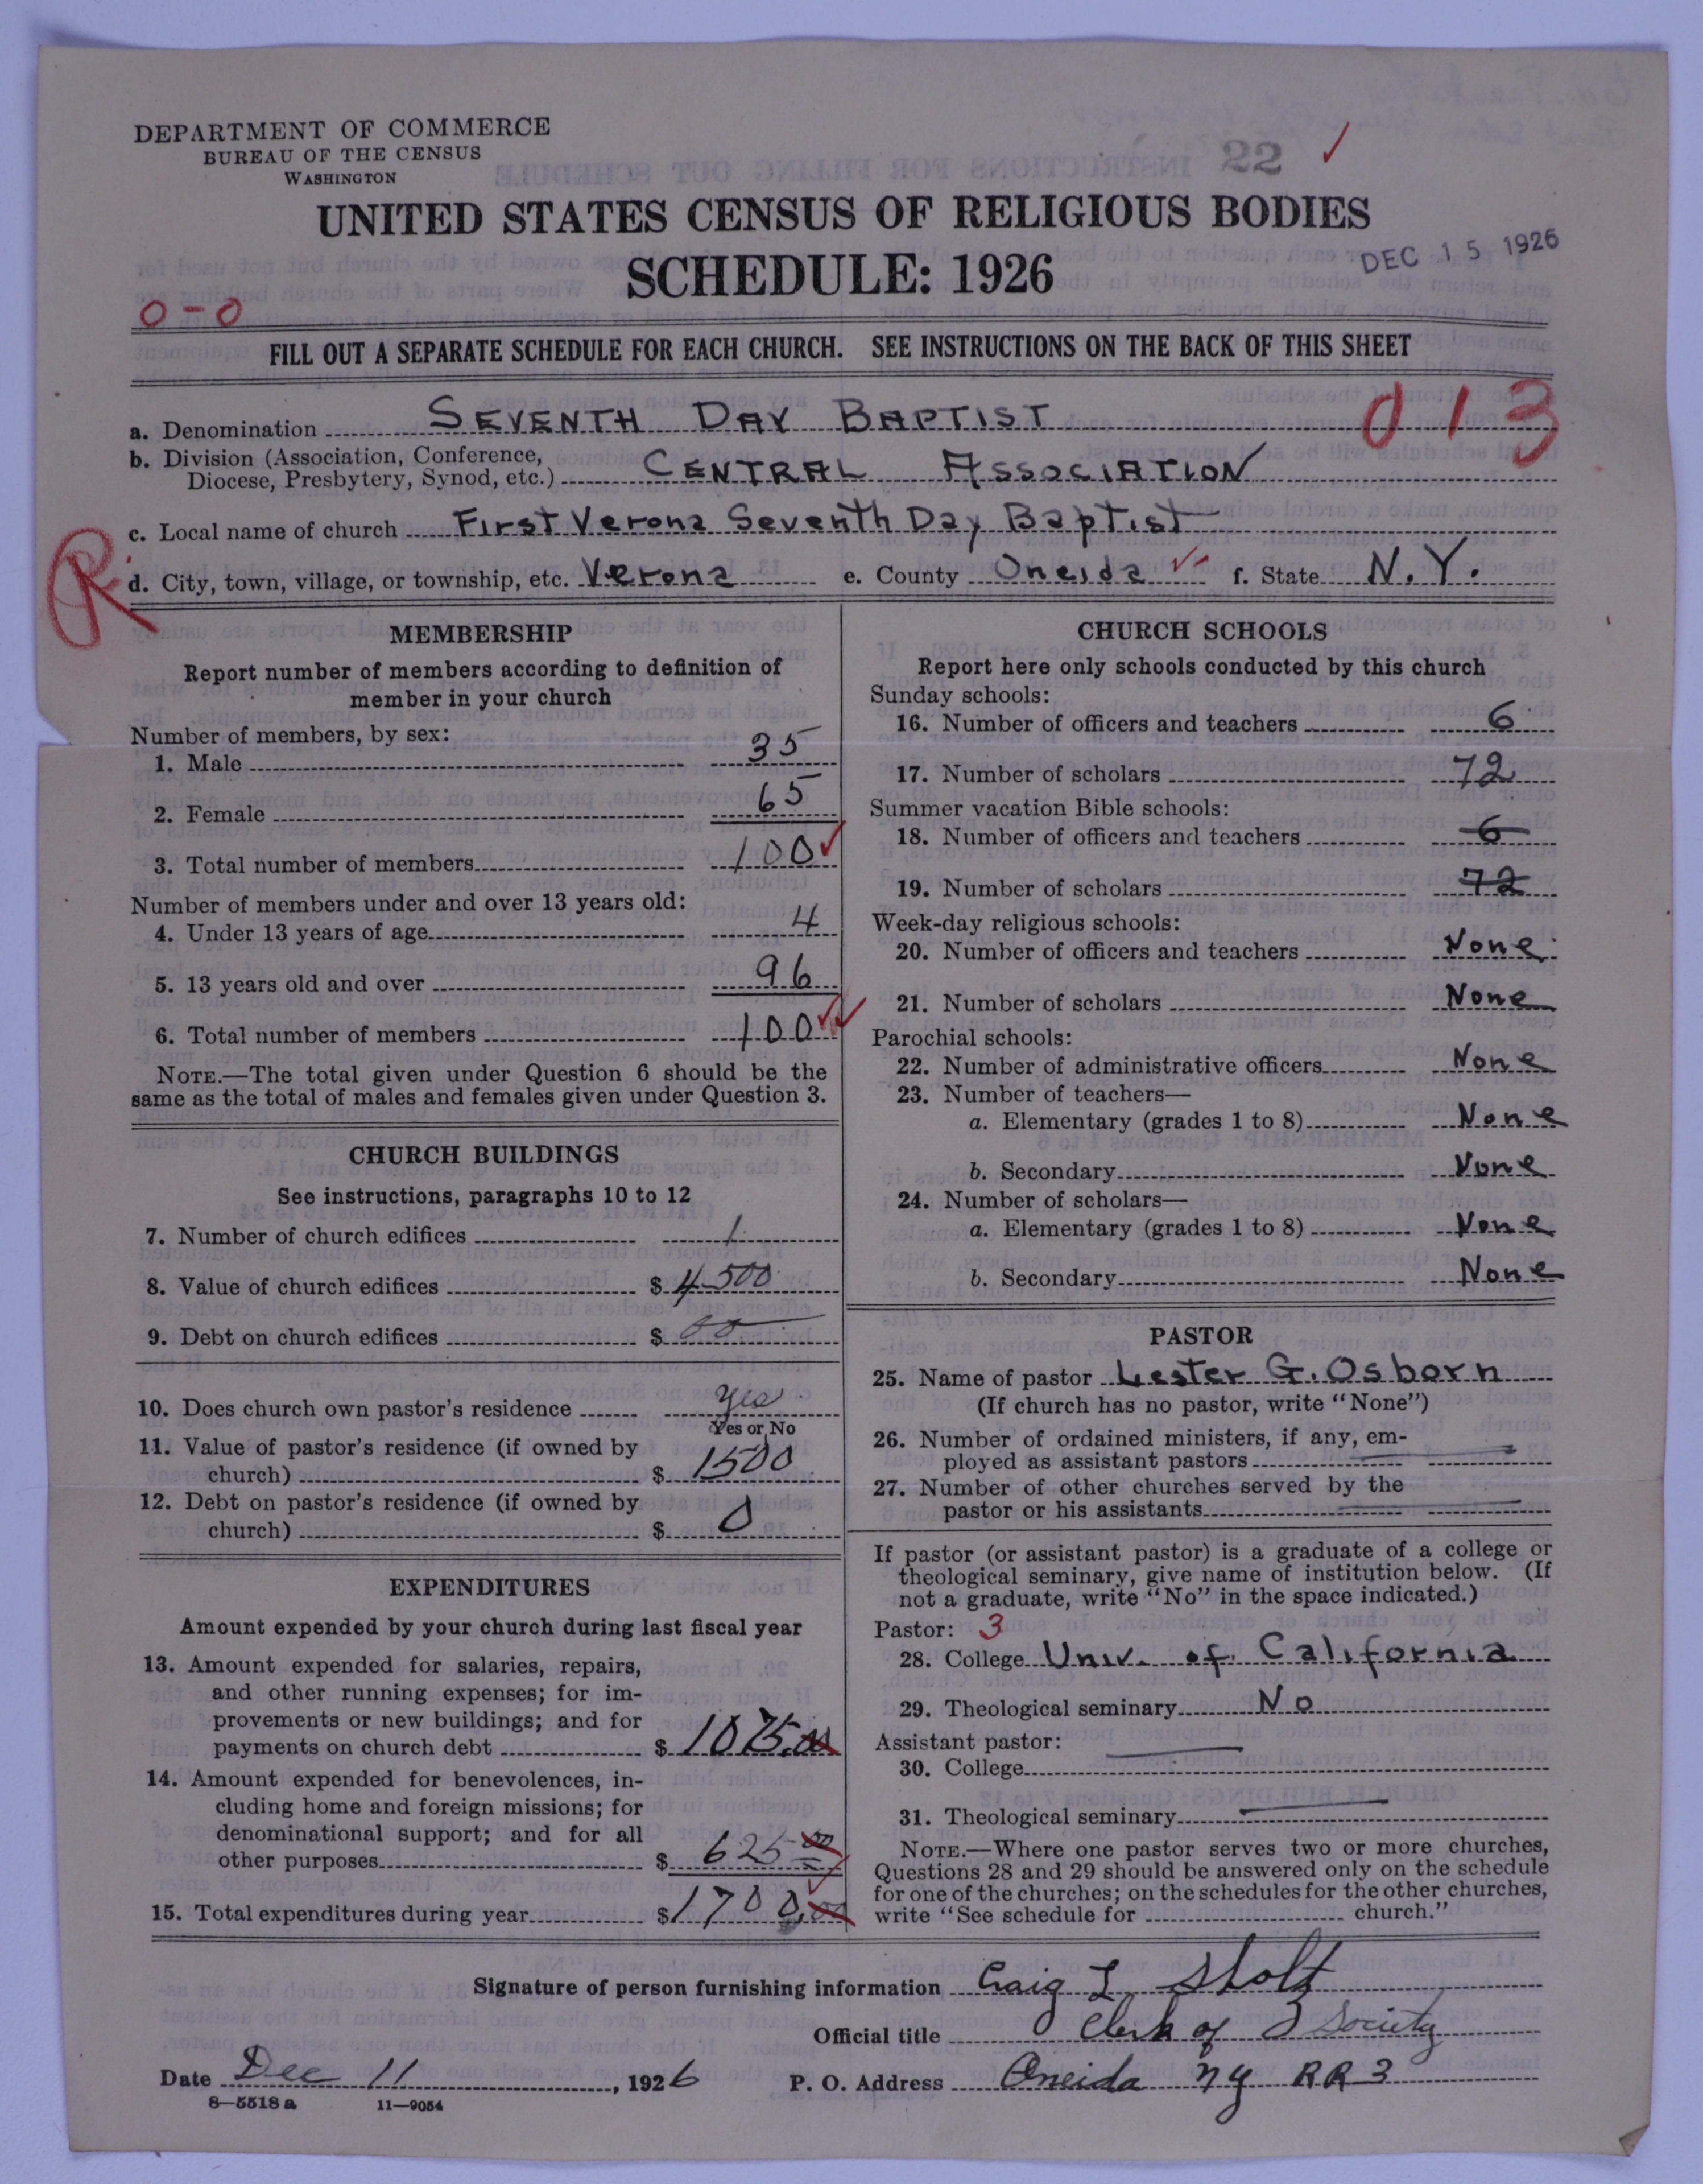 DEPARTMENT OF COMMERCE
BUREAU OF THE CENSUS
WASHINGTON
22 ✓
UNITED STATES CENSUS OF RELIGIOUS BODIES
SCHEDULE: 1926
DEC 15 1926
0-0
FILL OUT A SEPARATE SCHEDULE FOR EACH CHURCH. SEE INSTRUCTIONS ON THE BACK OF THIS SHEET
013
a. Denomination SEVENTH DAY BAPTIST
b. Division (Association, Conference,
Diocese, Presbytery, Synod, etc.) CENTRAL ASSOCIATION
c. Local name of church First Verona Seventh Day Baptist
R
d. City, town, village, or township, etc. Verona e. County Oneida f. State N.Y.
MEMBERSHIP
Report number of members according to definition of
member in your church
Number of members, by sex:
1. Male 35
2. Female 65
3. Total number of members 100
Number of members under and over 13 years old:
4. Under 13 years of age 4
5. 13 years old and over 96
6. Total number of members 100
NOTE.—The total given under Question 6 should be the
same as the total of males and females given under Question 3.
CHURCH BUILDINGS
See instructions, paragraphs 10 to 12
7. Number of church edifices 1
8. Value of church edifices $ 4500
9. Debt on church edifices $ 00
10. Does church own pastor's residence yes
Yes or No
11. Value of pastor's residence (if owned by
church) $ 1500
12. Debt on pastor's residence (if owned by
church) $ 0
EXPENDITURES
Amount expended by your church during last fiscal year
13. Amount expended for salaries, repairs,
and other running expenses; for im-
provements or new buildings; and for
payments on church debt $ 1075.00
14. Amount expended for benevolences, in-
cluding home and foreign missions; for
denominational support; and for all
other purposes $ 625 00
15. Total expenditures during year $ 1700.00
CHURCH SCHOOLS
Report here only schools conducted by this church
Sunday schools:
16. Number of officers and teachers 6
17. Number of scholars 72
Summer vacation Bible schools:
18. Number of officers and teachers 6
19. Number of scholars 72
Week-day religious schools:
20. Number of officers and teachers None
21. Number of scholars None
Parochial schools:
22. Number of administrative officers None
23. Number of teachers—
a. Elementary (grades 1 to 8) None
b. Secondary None
24. Number of scholars—
a. Elementary (grades 1 to 8) None
b. Secondary None
PASTOR
25. Name of pastor Lester G. Osborn
(If church has no pastor, write "None")
26. Number of ordained ministers, if any, em-
ployed as assistant pastors
27. Number of other churches served by the
pastor or his assistants
If pastor (or assistant pastor) is a graduate of a college or
theological seminary, give name of institution below. (If
not a graduate, write "No" in the space indicated.)
Pastor: 3
28. College Univ. of California
29. Theological seminary No
Assistant pastor:
30. College
31. Theological seminary
NOTE.—Where one pastor serves two or more churches,
Questions 28 and 29 should be answered only on the schedule
for one of the churches; on the schedules for the other churches,
write "See schedule for church."
Signature of person furnishing information Craig L Sholtz
Official title Clerk of Society
Date Dec 11, 1926 P. O. Address Oneida NY RR 3
8—5518 a 11—9054